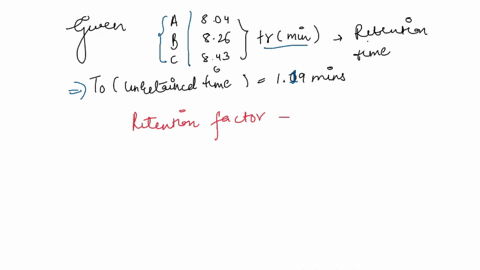 Given A 8.04
B 8.26 tr (min) → Retention time
C 8.43
6
⇒ To (unretained time) = 1.19 mins
Retention factor -